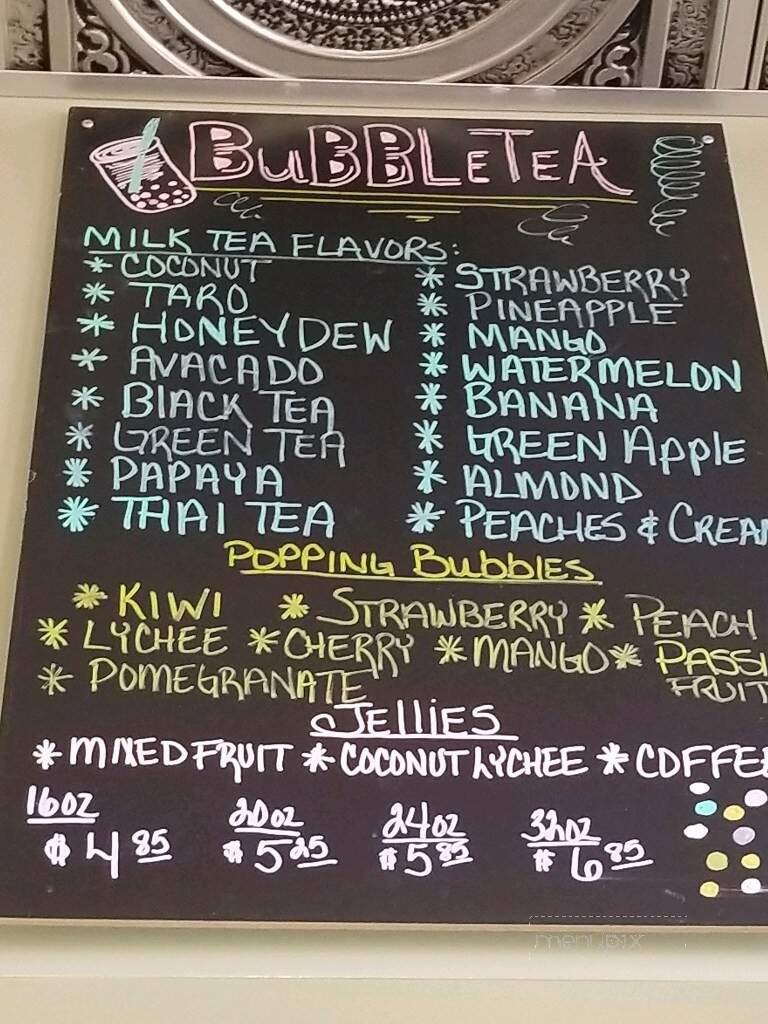 BUBBLE TEA
MILK TEA FLAVORS:
* COCONUT
* TARO
* HONEYDEW
* AVACADO
* BLACK TEA
* GREEN TEA
* PAPAYA
* THAI TEA
* STRAWBERRY
* PINEAPPLE
* MANGO
* WATERMELON
* BANANA
* GREEN APPLE
* ALMOND
* PEACHES & CREA
POPPING BUBBLES
* KIWI * STRAWBERRY * PEACH
* LYCHEE * CHERRY * MANGO * PASSI
* POMEGRANATE FRUIT
JELLIES
* MIXED FRUIT * COCONUT LYCHEE * COFFEE
16oz 20oz 24oz 32oz
$4.85 $5.25 $5.85 $6.85
menupix